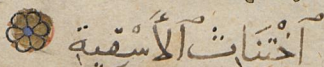 ٱخْتَنَاثُ ٱلْأَسْقِيَةِ